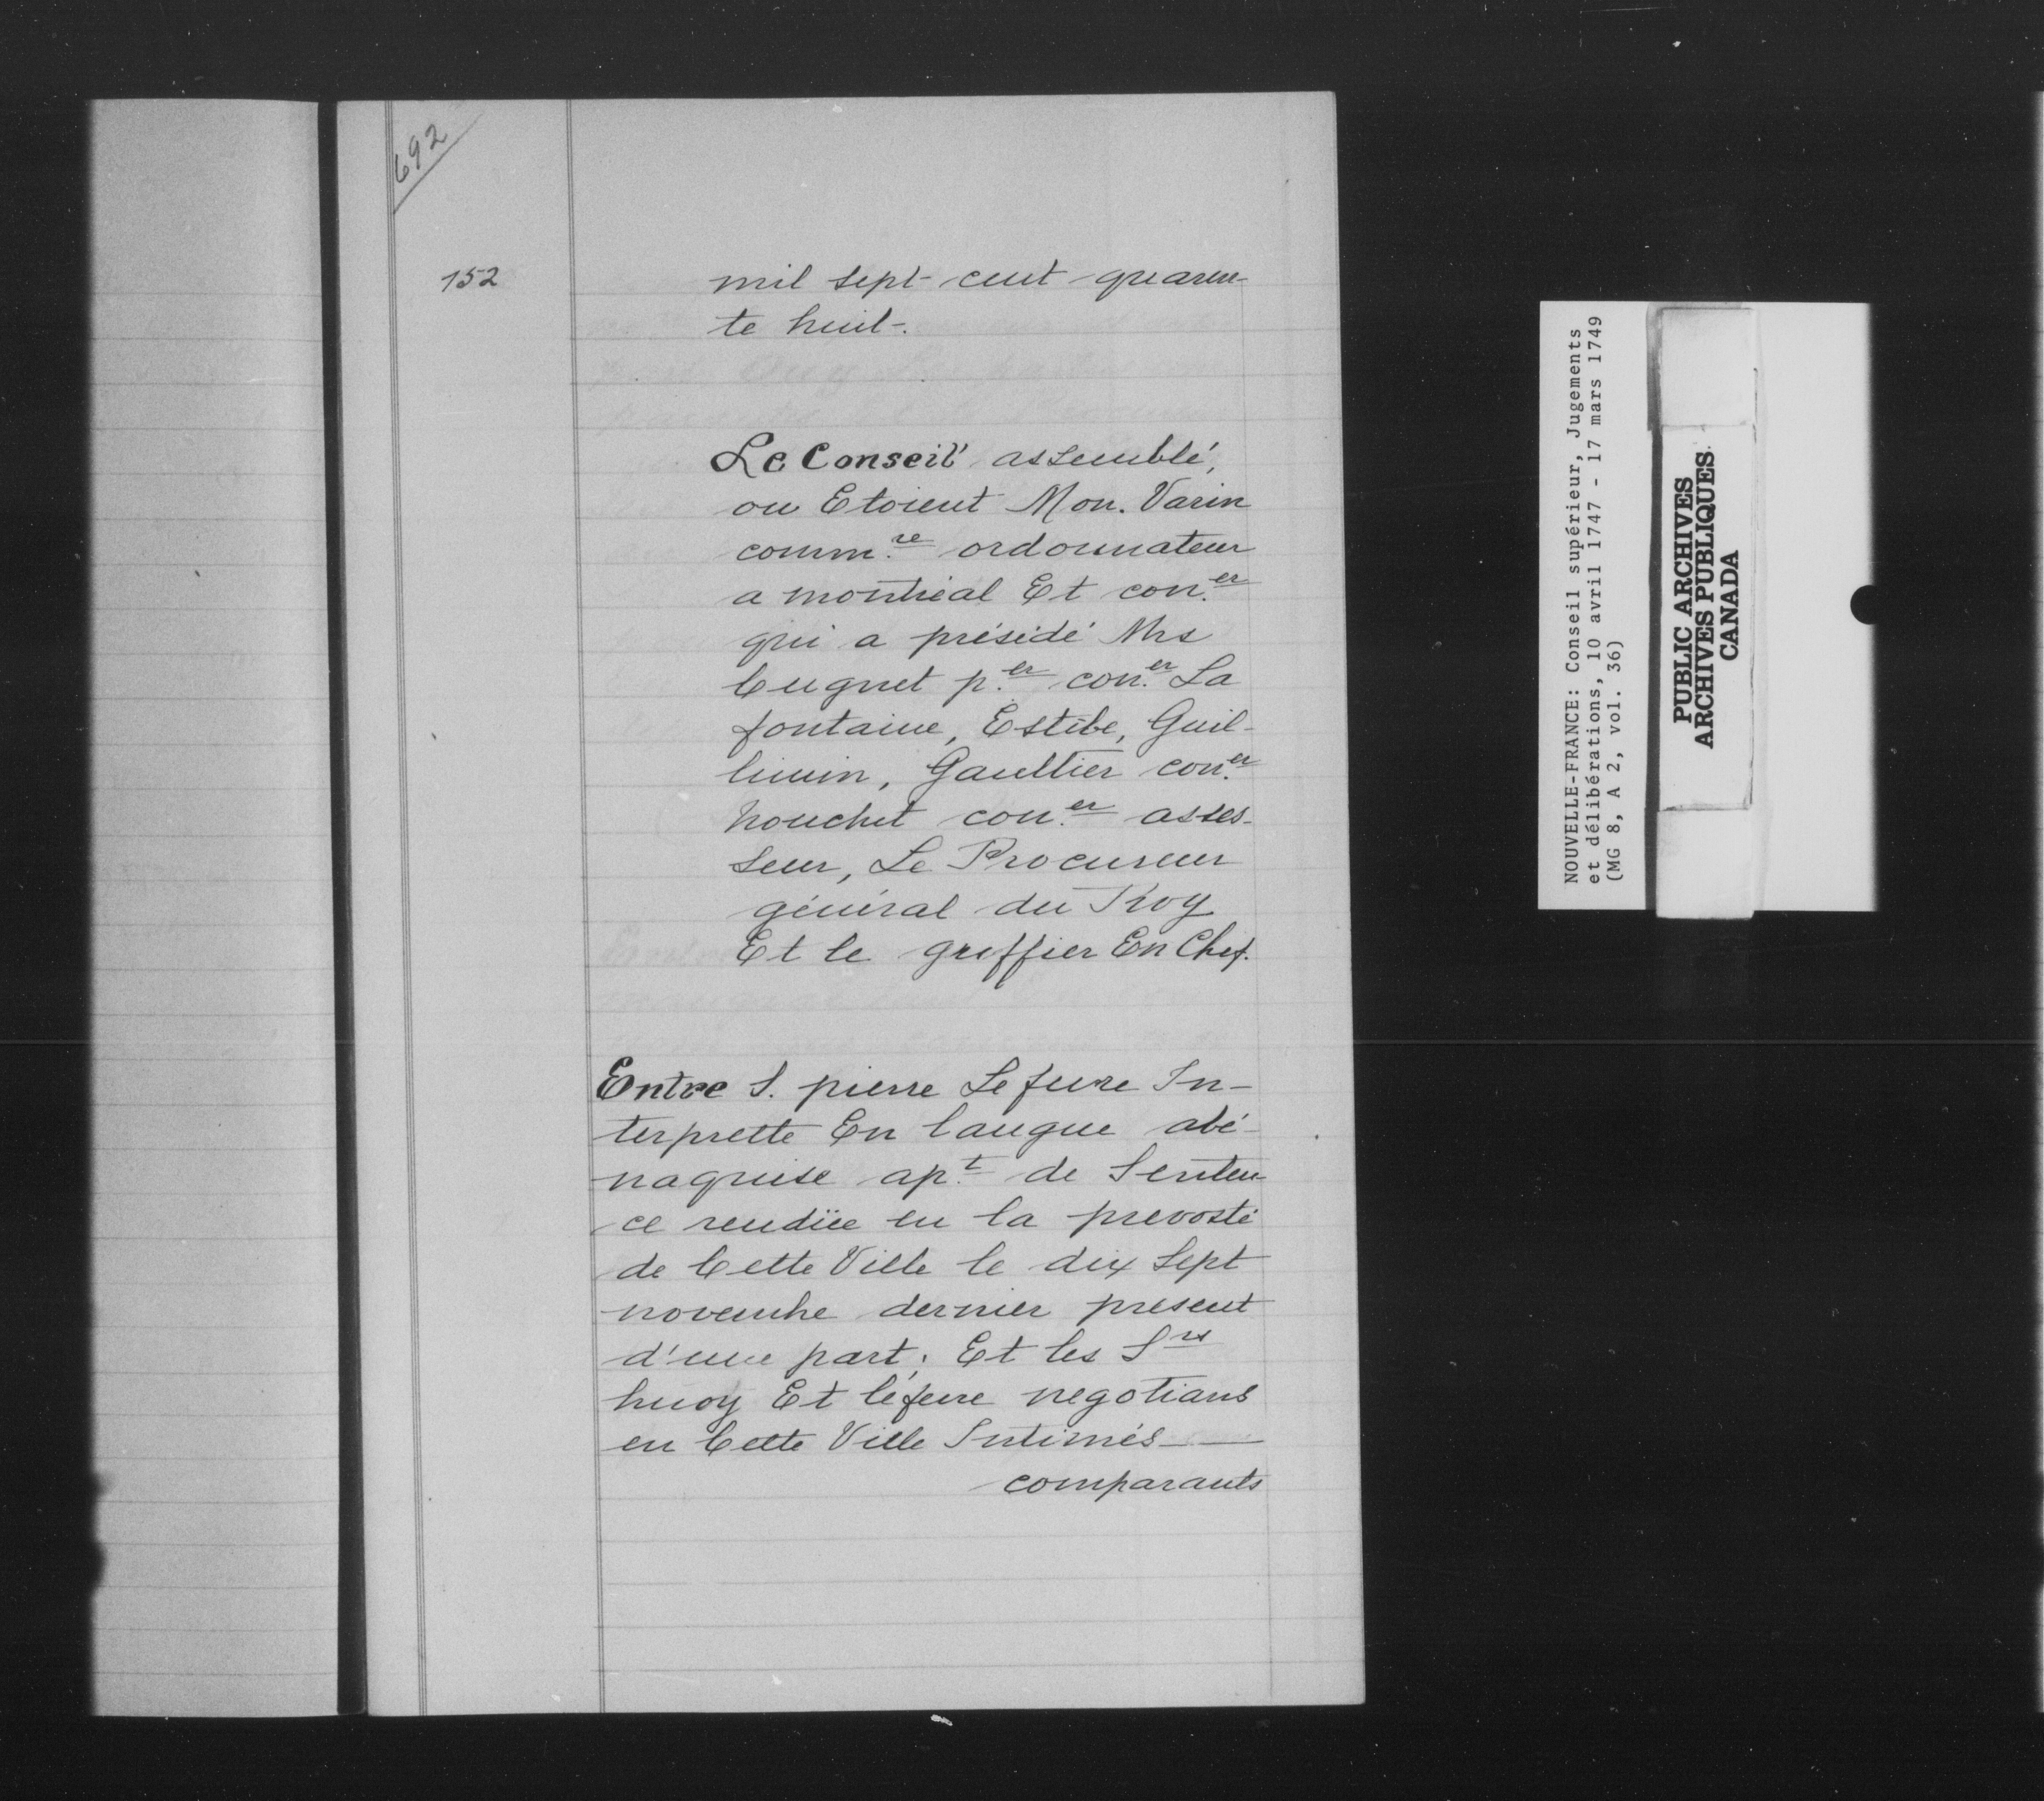 692
152
mil sept cent quaren-
te huit.
Le Conseil assemblé,
ou Etoient Mon. Varin
comm.re ordonnateur
a montréal Et con.er
qui a présidé Mrs
Cugnet p.er con.er La
fontaine, Estèbe, Guil-
limin, Gaultier con.er
Nouchet con.er asses-
seur, Le Procureur
général du Roy
Et le greffier En Chef.
Entre S. pierre Lefuvre In-
terprette En langue abé-
naquise ap.t de Senten-
ce rendüe en la prevosté
de Cette Ville le dix Sept
novembre dernier present
d'une part; Et les Srs
huoy Et lefevre negotians
en Cette Ville Intimés
comparants
NOUVELLE-FRANCE: Conseil supérieur, Jugements
et délibérations, 10 avril 1747 - 17 mars 1749
(MG 8, A 2, vol. 36)
PUBLIC ARCHIVES
ARCHIVES PUBLIQUES
CANADA